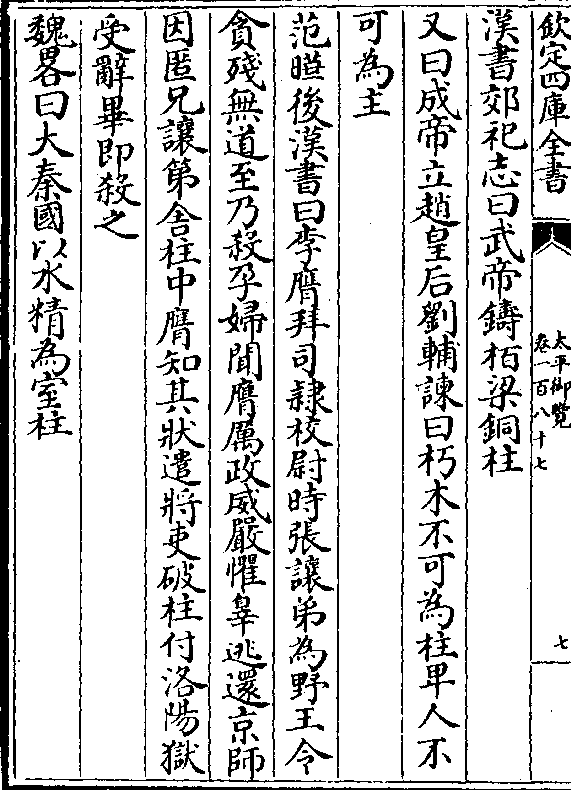 欽定四庫全書
太平御覽
卷一百八十七
七
漢書郊祀志曰武帝鑄栢梁銅柱
又曰成帝立趙皇后劉輔諫曰朽木不可為柱卑人不
可為主
范曄後漢書曰李膺拜司隸校尉時張讓弟為野王令
貪殘無道至乃殺孕婦聞膺厲政威嚴懼辠逃還京師
因匿兄讓第舍柱中膺知其狀遣將吏破柱付洛陽獄
受辭畢即殺之
魏畧曰大秦國以水精為室柱